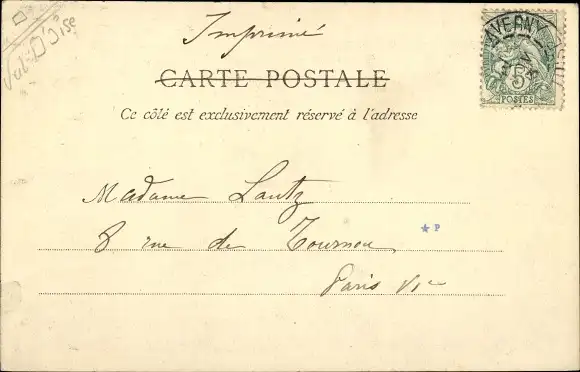 Val-D'Oise
Imprimé
CARTE POSTALE
Ce côté est exclusivement réservé à l'adresse
TAVERNY
5
POSTES
Madame Lautz
8 rue de Tournon
Paris VIe
P